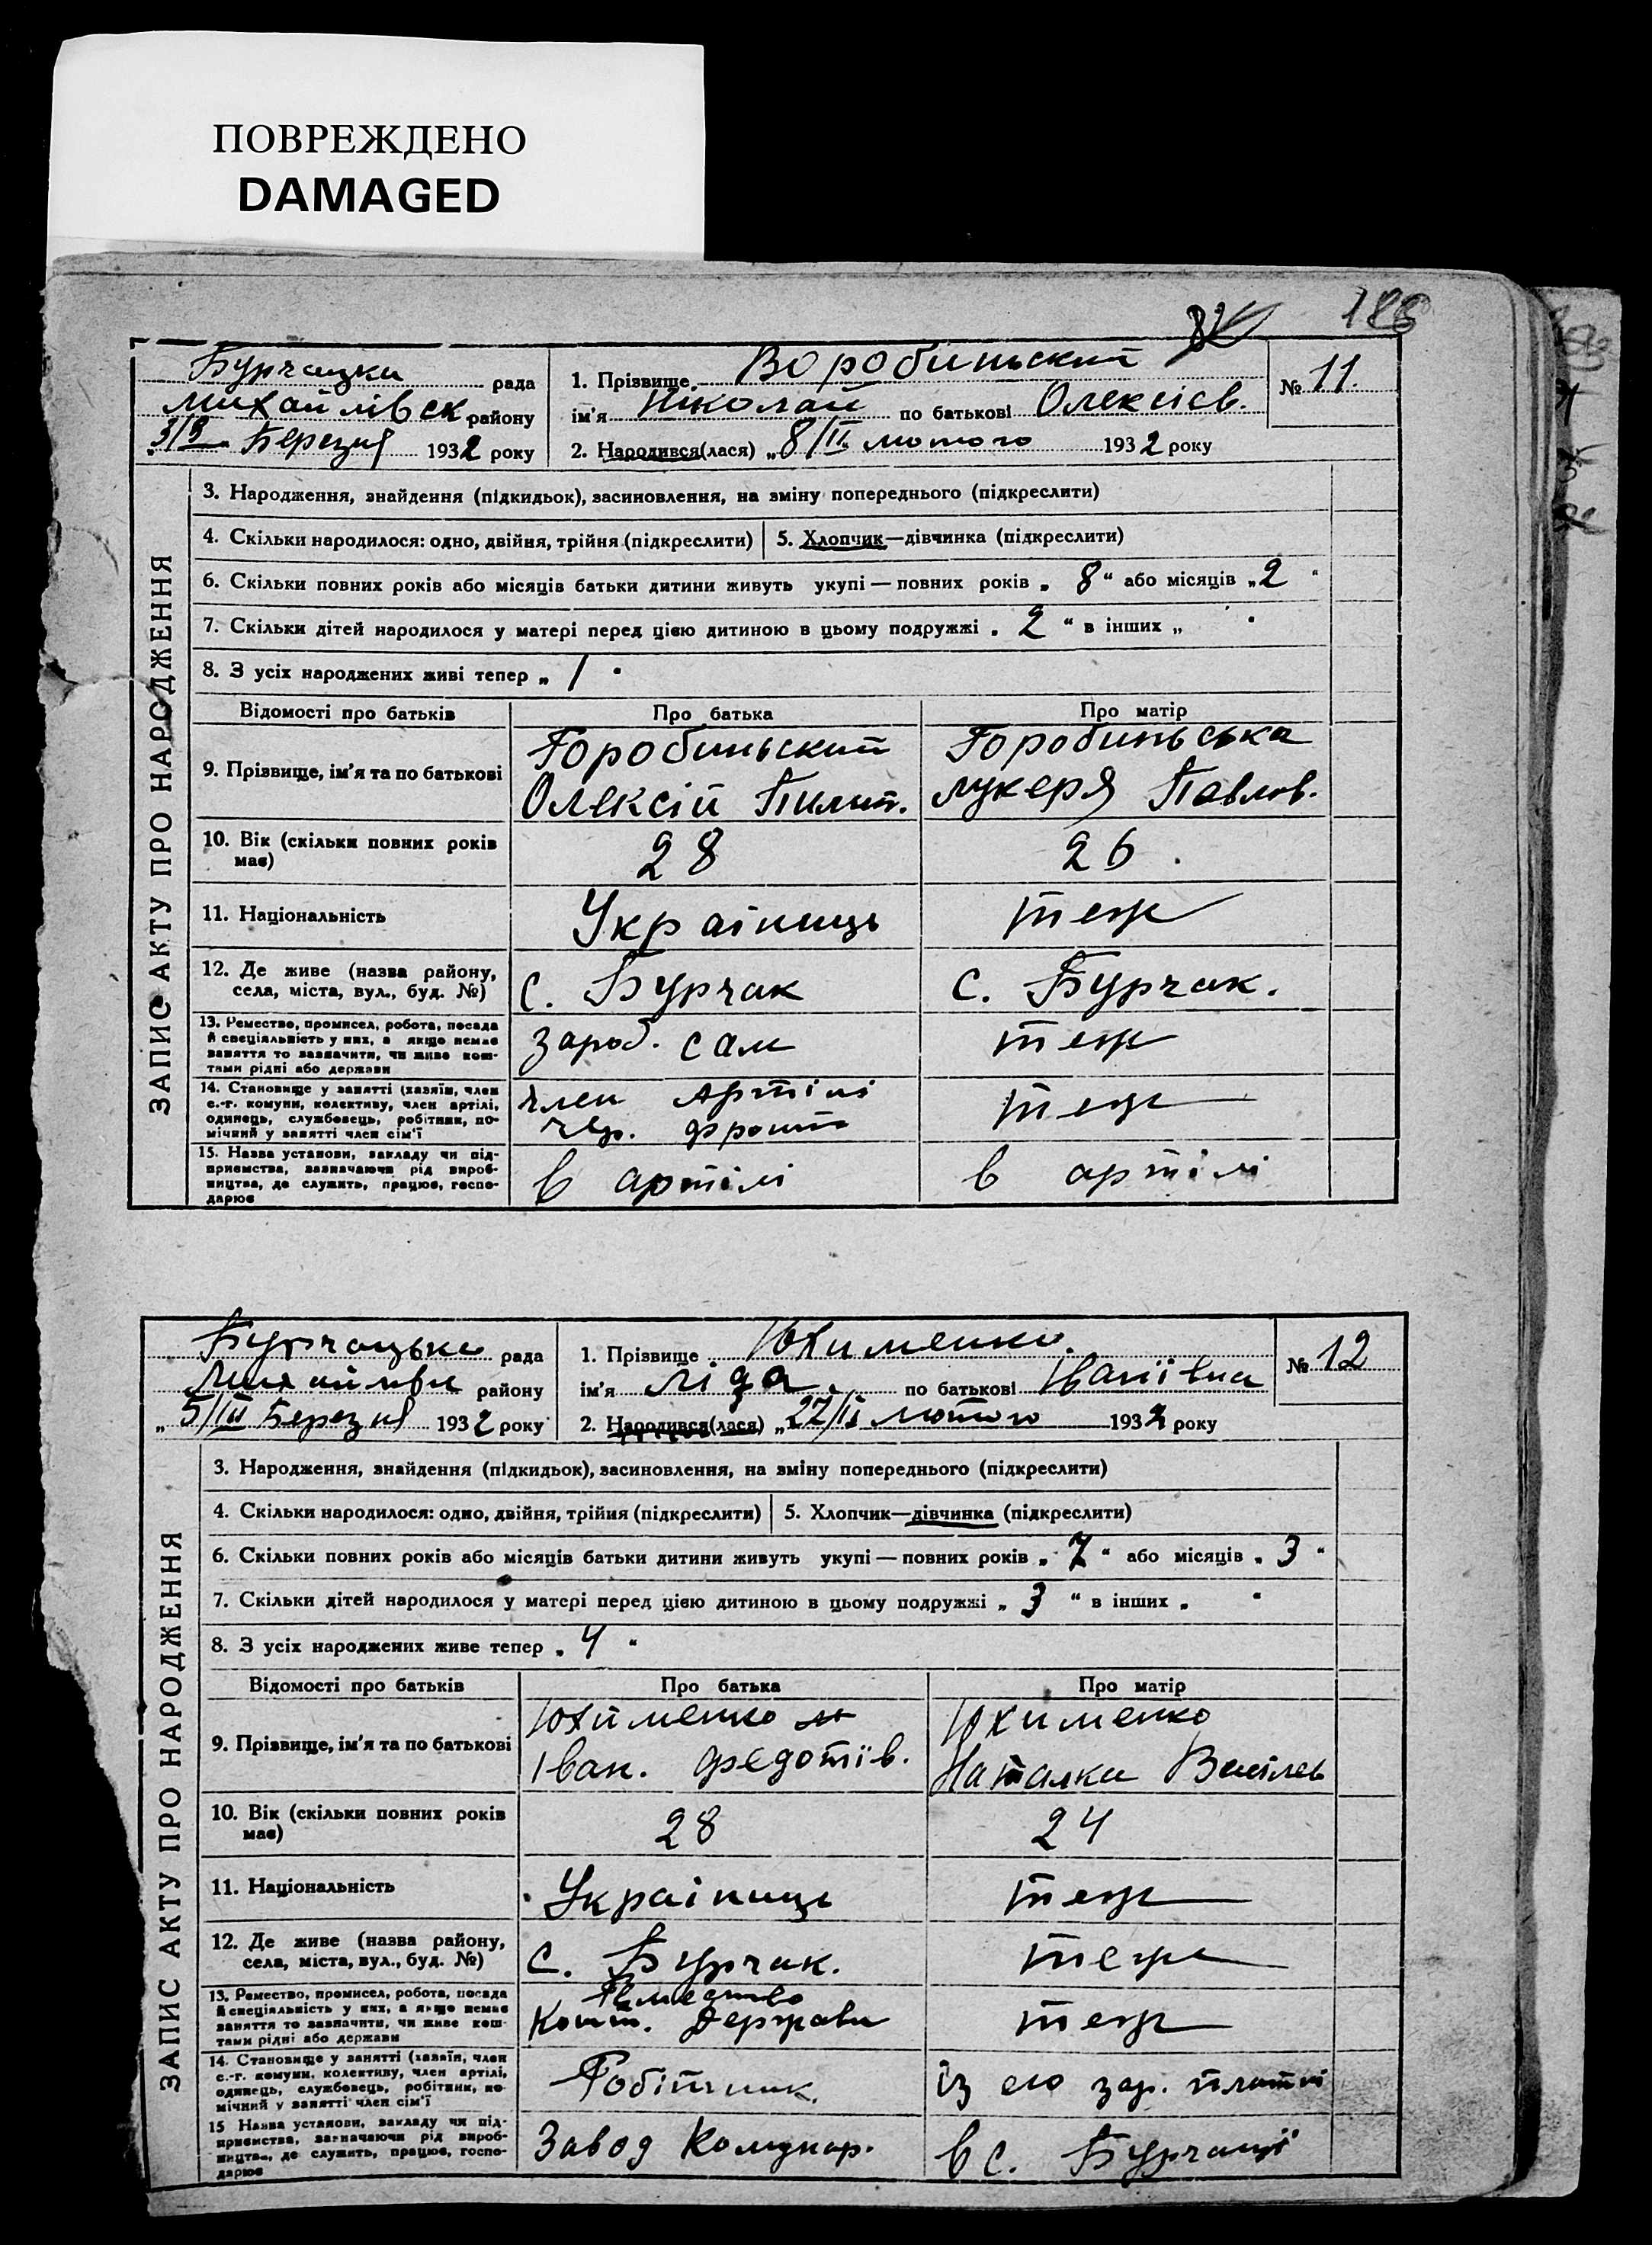 ПОВРЕЖДЕНО
DAMAGED
188
Бурчацка рада
Михайлівск району
3/3 Березня 1932 року
1. Прізвище Воробиньский
ім'я Николай по батькові Олексієв.
№ 11.
2. Народився(лася) „8/II лютого 1932 року
ЗАПИС АКТУ ПРО НАРОДЖЕННЯ
3. Народження, знайдення (підкидьок), засиновлення, на зміну попереднього (підкреслити)
4. Скільки народилося: одно, двійня, трійня (підкреслити)
5. Хлопчик—дівчинка (підкреслити)
6. Скільки повних років або місяців батьки дитини живуть укупі — повних років „ 8 “ або місяців „ 2 “
7. Скільки дітей народилося у матері перед цією дитиною в цьому подружжі „ 2 “ в інших „ “
8. З усіх народжених живі тепер „ 1 “
Відомості про батьків Про батька Про матір
9. Прізвище, ім'я та по батькові
Горобиньский
Олексій Пилип.
Горобиньська
Лукеря Павлов.
10. Вік (скільки повних років
має)
28
26.
11. Національність
Українець
теж
12. Де живе (назва району,
села, міста, вул., буд. №)
с. Бурчак
с. Бурчак.
13. Ремество, промисел, робота, посада
й спеціяльність у них, а якщо немає
заняття то зазначити, чи живе кош-
тами рідні або держави
зароб. сам
теж
14. Становище у занятті (хазяїн, член
с.-г. комуни, колективу, член артілі,
одинець, службовець, робітник, по-
мічний у занятті член сім'ї
член Артілі
чер. фронт
теж
15. Назва установи, закладу чи під-
приємства, зазначаючи рід вироб-
ництва, де служить, працює, госпо-
дарює
в артілі
в артілі
Бурчацька рада
району
„ 5/III Березня 1932 року
1. Прізвище Юхименко.
ім'я Ліда. по батькові Іванівна
№ 12
2. Народився(лася) „22/II лютого 1932 року
ЗАПИС АКТУ ПРО НАРОДЖЕННЯ
3. Народження, знайдення (підкидьок), засиновлення, на зміну попереднього (підкреслити)
4. Скільки народилося: одно, двійня, трійня (підкреслити)
5. Хлопчик—дівчинка (підкреслити)
6. Скільки повних років або місяців батьки дитини живуть укупі — повних років „ 7 “ або місяців „ 3 “
7. Скільки дітей народилося у матері перед цією дитиною в цьому подружжі „ 3 “ в інших „ “
8. З усіх народжених живе тепер „ 4 “
Відомості про батьків Про батька Про матір
9. Прізвище, ім'я та по батькові
Юхименко
Іван. Федотїв.
Юхименко
Наталка Василев
10. Вік (скільки повних років
має)
28
24
11. Національність
Українець
теж
12. Де живе (назва району,
села, міста, вул., буд. №)
с. Бурчак.
теж
13. Ремество, промисел, робота, посада
й спеціяльність у них, а якщо немає
заняття то зазначити, чи живе кош-
тами рідні або держави
Кошт. Держави
теж
14. Становище у занятті (хазяїн, член
с.-г. комуни, колективу, член артілі,
одинець, службовець, робітник, по-
мічний у занятті член сім'ї
Робітник.
із его зар. платні
15 Назва установи, закладу чи під-
приємства, зазначаючи рід вироб-
ництва, де служить, працює, госпо-
дарює
Завод Комунар.
в с. Бурчаці